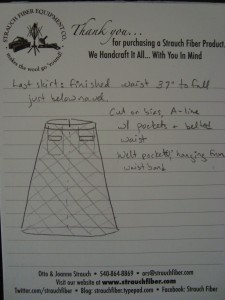 STRAUCH FIBER EQUIPMENT CO.
makes the wool go 'round!
Thank you...
for purchasing a Strauch Fiber Product.
We Handcraft It All... With You In Mind
Last skirt: finished waist 37" to fall
just below navel.
Cut on bias, A-line
w/ pockets + belted
waist
Welt pockets, hanging from
waistband
Otto & Joanne Strauch • 540-864-8869 • am@strauchfiber.com
Visit our website at www.strauchfiber.com
Twitter.com/strauchfiber • Blog: strauchfiber.typepad.com • Facebook: Strauch Fiber